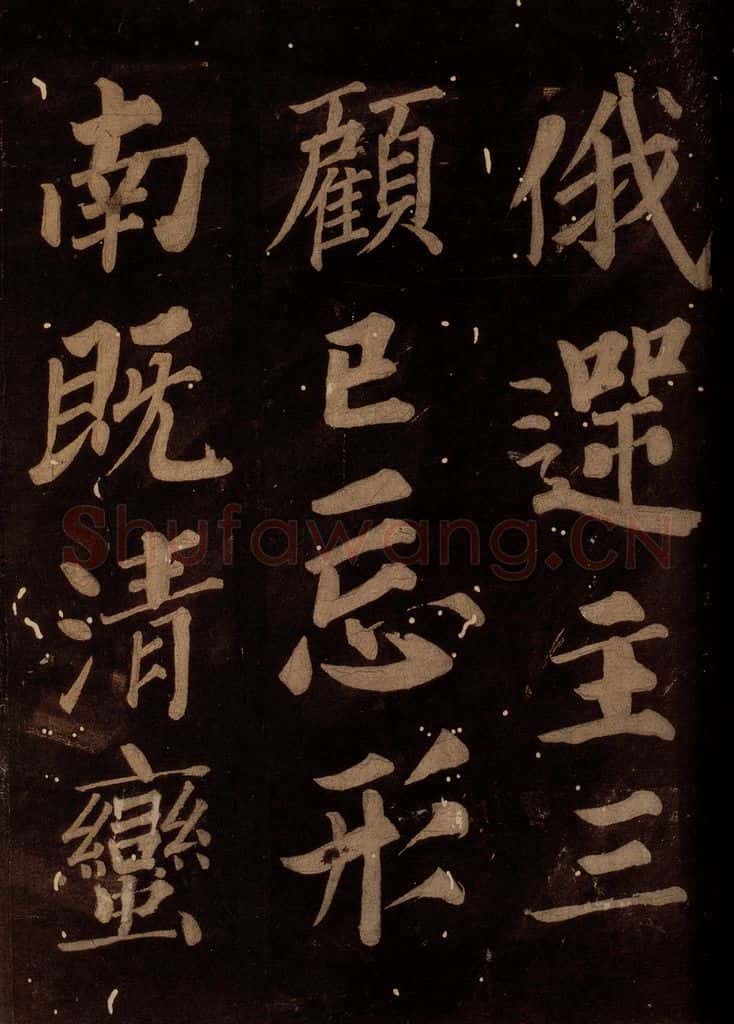 俄遌主三
顧已忘形
南既清蠻
Shufawang.CN